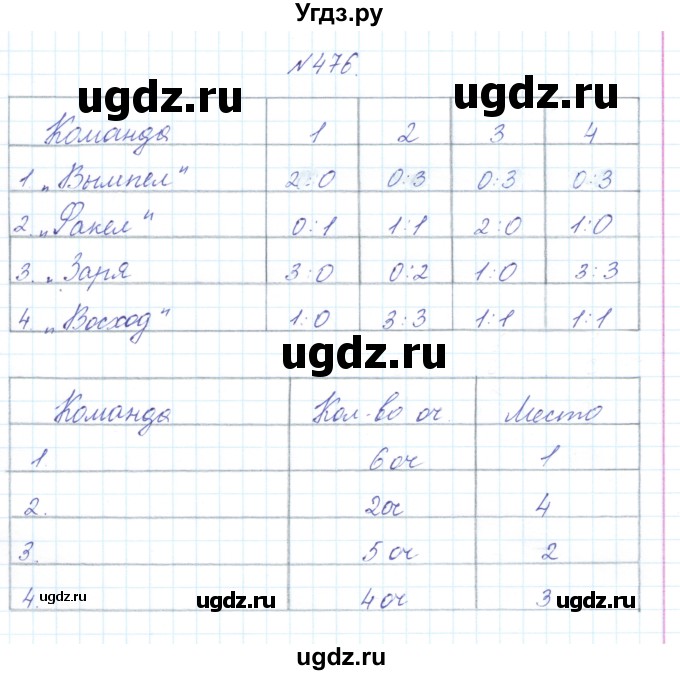 Угдз.ру
№476.
ugdz.ru ugdz.ru
Команда 1 2 3 4
1 „Вымпел" 2:0 0:3 0:3 0:3
2. „Факел" 0:1 1:1 2:0 1:0
3. „Заря 3:0 0:2 1:0 3:3
4. „Восход" 1:0 3:3 1:1 1:1
ugdz.ru
Команда Кол-во оч. Место
1. 6 оч 1
2. 2оч 4
3. 5 оч 2
4. 4 оч 3
ugdz.ru ugdz.ru ugdz.ru
ugdz.ru